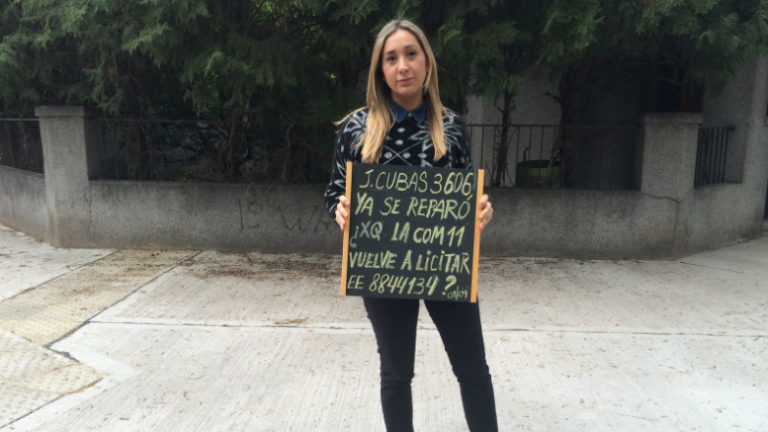 J. CUBAS 3606
YA SE REPARÓ
¿XQ LA COM 11
VUELVE A LICITAR
EE 8844134 ? 09/09